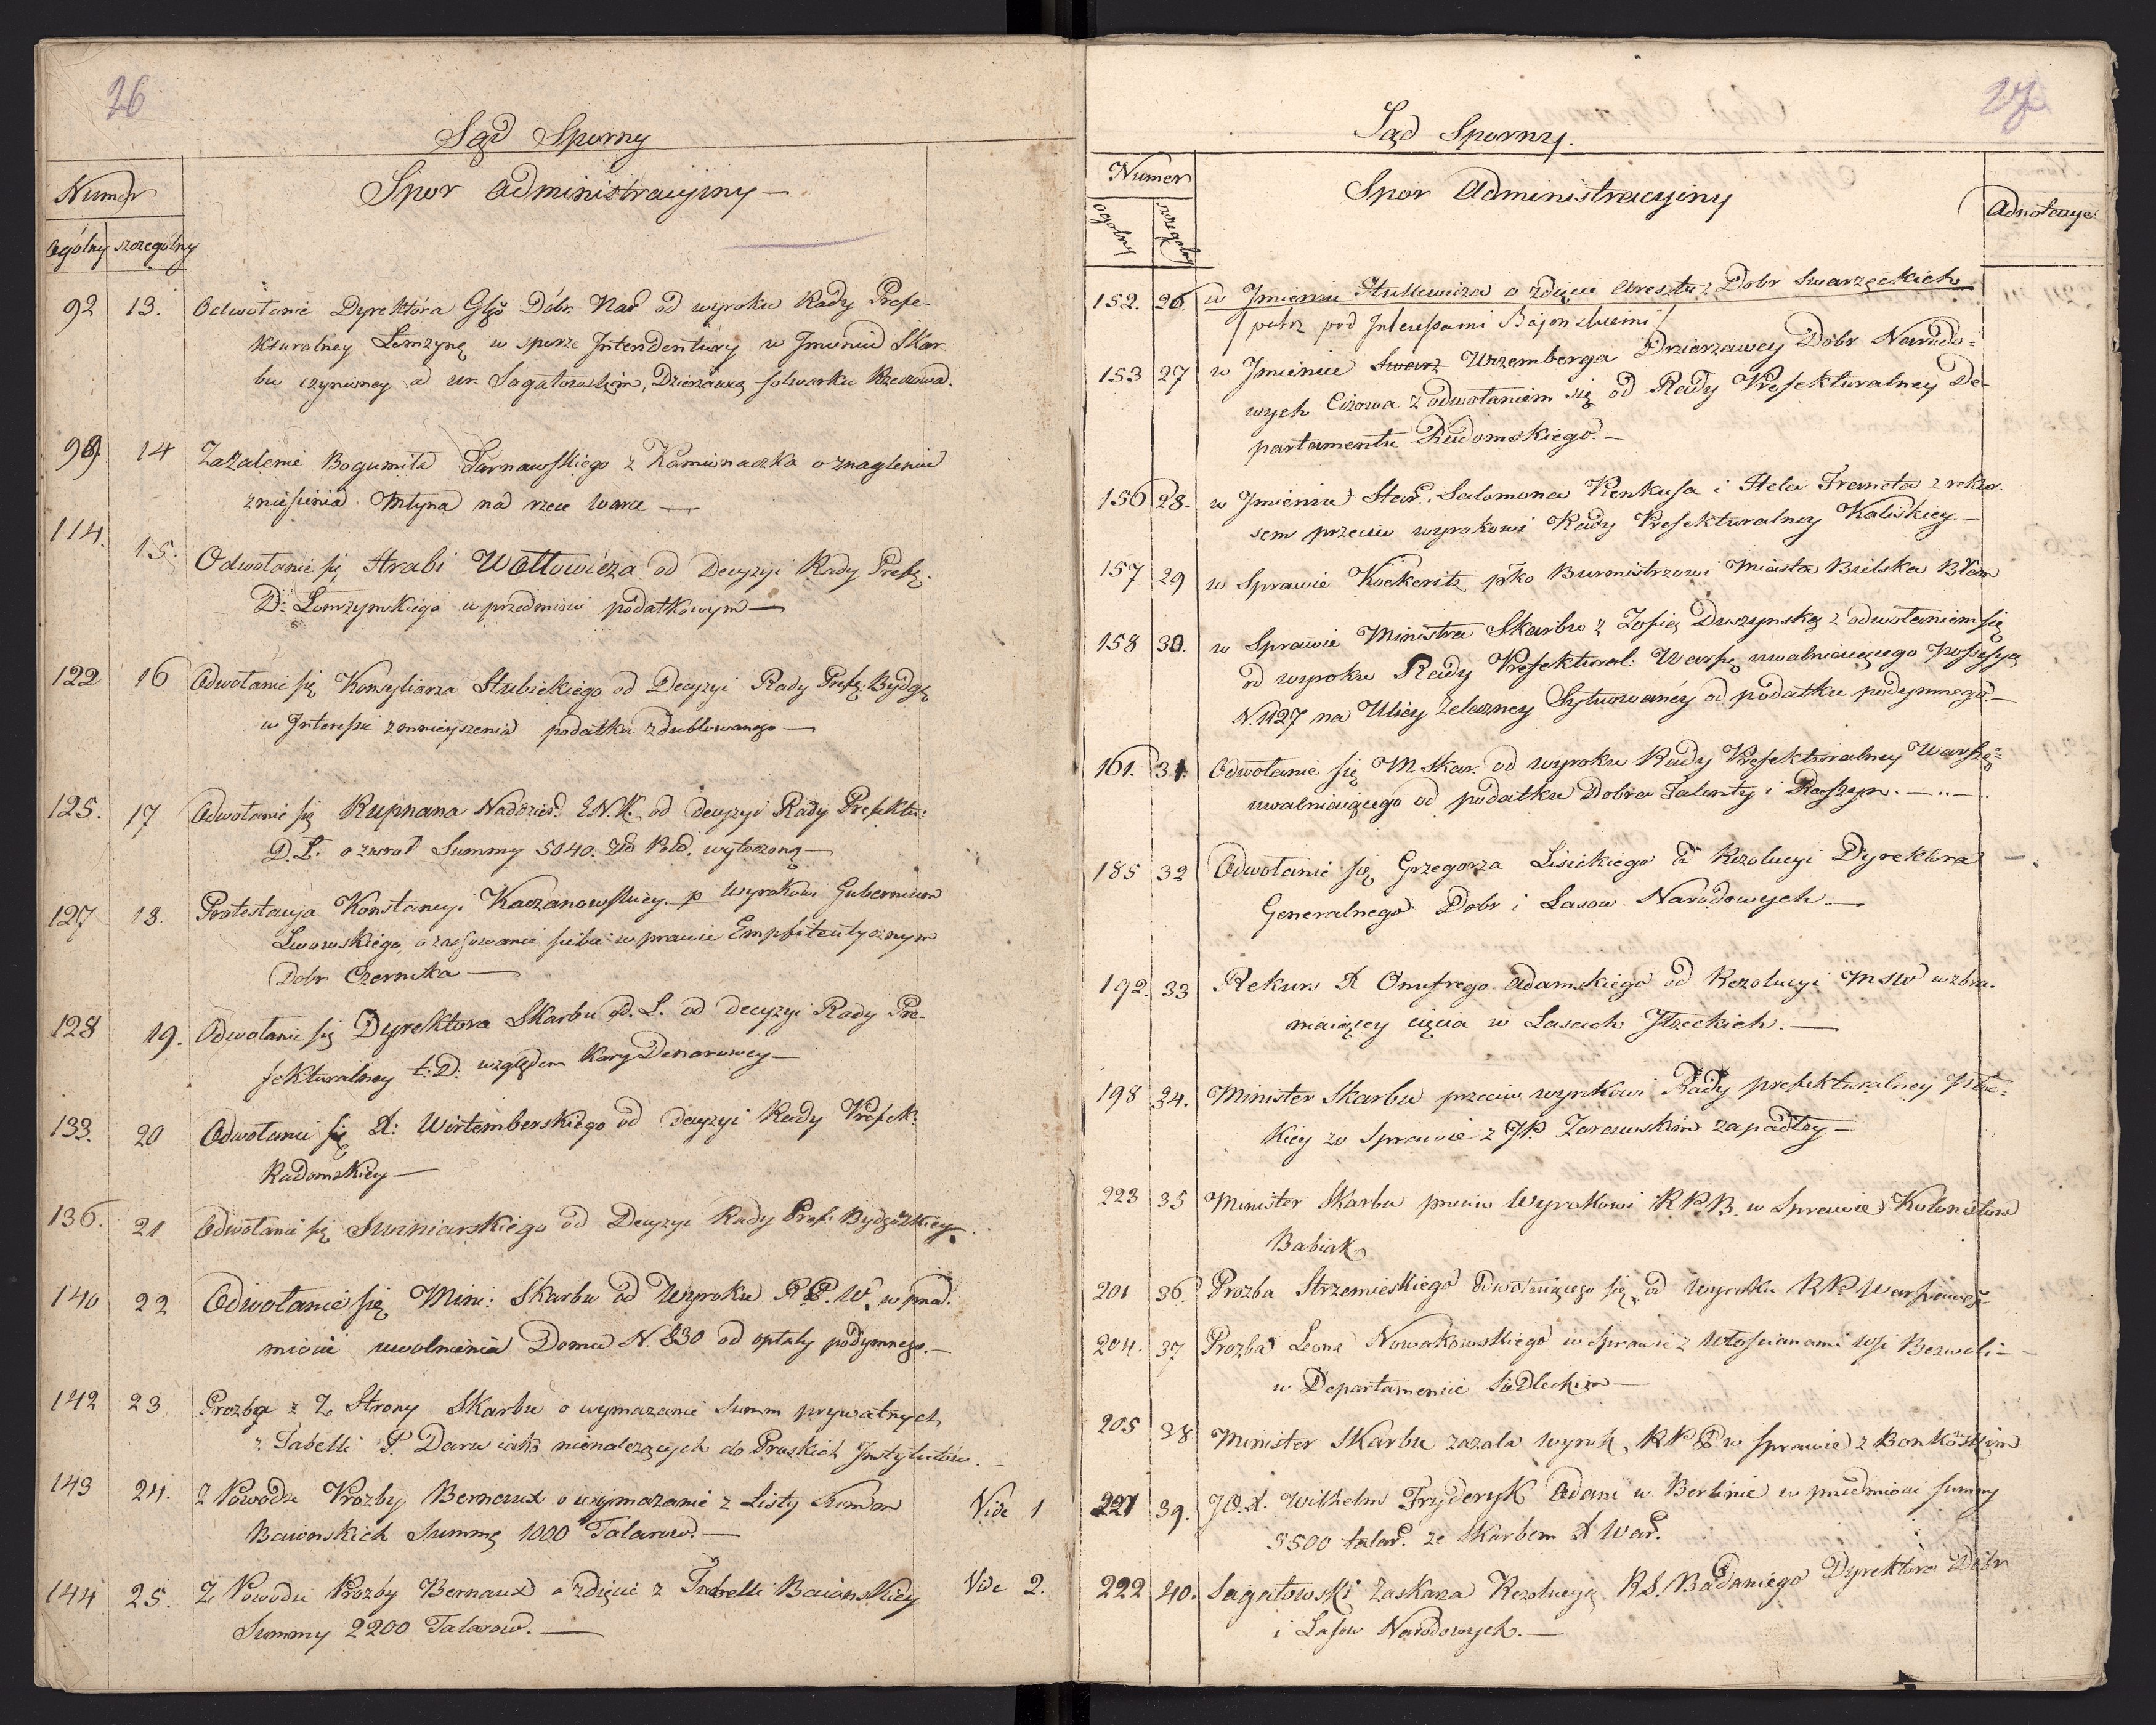 26
Sąd Sporny
Numer
Spor administracyiny —
Ogólny szczególny
92 13. Odwołanie Dyrektóra Glgo Dóbr. Nar od wyroku Rady Prefe-
kturalney Łomzynę w sporze Intendentury w Imieniu Skar-
bu czynioney a ur. Sagatowskim, Dzierżawcą folwarku
99 14 Zażalenie Bogumiła Tarnawskiego z Kamionaczka o znaglenie
zniesienia Młyna na rzece Warce —
114. 15. Odwołanie się Hrabi Wołłowicza od Decyzyi Rady Prefę.
D: Łomzynskiego w przedmiocie podatkowym —
122 16 Odwołanie się Konsyliarza Słubickiego od Decyzyi Rady Prefę. Bydgę
w Interessie zmnieyszenia podatku zdublowanego —
125. 17 Odwołanie się Rupnana Naddzier. E.N.K. od decyzyi Rady Prefektu:
D.Ł. o zwrot Summy 5040. Zło Pold. wytoczoną —
127 18. Protestacya Konstancyi Kaczanowskiey. p Wyrokowi Gubernium
Lwowskiego o zachowanie siebie w prawie Emphiteutycznym
Dobr Czernika —
128 19. Odwołanie się Dyrektora Skarbu D. Ł. od decyzyi Rady Pre-
fekturalney t: D. względem Kary Denarowey —
133. 20 Odwołanie się X: Wirtemberskiego od decyzyi Rady Prefek:
Radomskiey —
136. 21 Odwołanie się Swiniarskiego od Decyzyi Rady Pref. Bydgoskiey.
140 22 Odwołanie się Mini: Skarbu od Wyroku R.P.W. w przed.
miocie uwolnienia Domu N. 830 od opłaty podymnego. —
142 23 Prozba z Z Strony Skarbu o wymazanie summ prywatnych
z Tabelli P. Daru iako nienależących do Pruskich Instytutów. —
143 24. Z Powodu Prozby Bernaux o wymazanie z Listy Summ Vide 1
Baionskich Summę 1000 Talarow. —
144 25. Z Powodu Prozby Bernaux o zdięcie z Tabelli Baionskiey Vide 2.
Summy 2200 Talarow. —
27
Sąd Sporny.
Numer
Spor Administracyiny
Adnotacye
ogolny szczegolny
152. 26. w Imieniu Hullewicza o zdięcie Aresztu z Dobr Swarzęckich
/ patrz pod Interessami Bajonskiemi /
153 27 w Imieniu Swarz Wiremberga Drzierzawcy Dobr Narodo-
wych Ciżowa z odwołaniem się od Rady Prefekturalney De-
partamentu Radomskiego. —
156 28. w Imieniu Star. Salomona Pienkusa i Hela Frameta z rekur.
sem przeciw wyrokowi Rady Prefekturalney Kaliskiey. —
157 29 w Sprawie Kockeritz pko Burmistrzowi Miasta Bielska
158 30. w Sprawie Ministra Skarbu z Zofią Duszynską z odwołaniem się
od wyroku Rady Prefektural: Warszę uwalniaiącego possesyą
N. 1127 na Ulicy Zelazney Sytuowaney od podatku podymnego. —
161. 31. Odwołanie się M Skar. od wyroku Rady Prefekturalney Warszę-
uwalniaiącego od podatku Dobra Falenty i Raszyn. —
185 32 Odwołanie się Grzegorza Lisickiego od Rezolucyi Dyrektora
Generalnego Dobr i Lasow Narodowych —
192. 33 Rekurs X Onufrego Adamskiego od Rezolucyi MSW wzbra-
niaiącey cięcia w Lasach Iłzeckich. —
198 34. Minister Skarbu przeciw wyrokowi Rady prefekturalney Płoc-
kiey w Sprawie z JP. Zarawskim zapadłey —
223 35 Minister Skarbu przeciw Wyrokowi R.P.B. w Sprawie Kolonistow
Babiak
201 36. Prozba Strzemieskiego odwołuiącego się od Wyroku RP Warszawsk.
204. 37 Prozba Leona Nowakowskiego w Sprawie z Włoscianami Wsi Bezwoli —
w Departamencie Siedleckim —
205 38 Minister Skarbu wyrok, RPP w sprawie z Bonkowskim
221 39. J.O.X. Wilhelm Fryderyk Adam w Berlinie w przedmiocie summy
5500 talar. ze Skarbem X War.
222 40. Sagatowski zaskarza Rezolucyą R.S. Badaniego Dyrektora Dóbr
i Lasow Narodowych. —